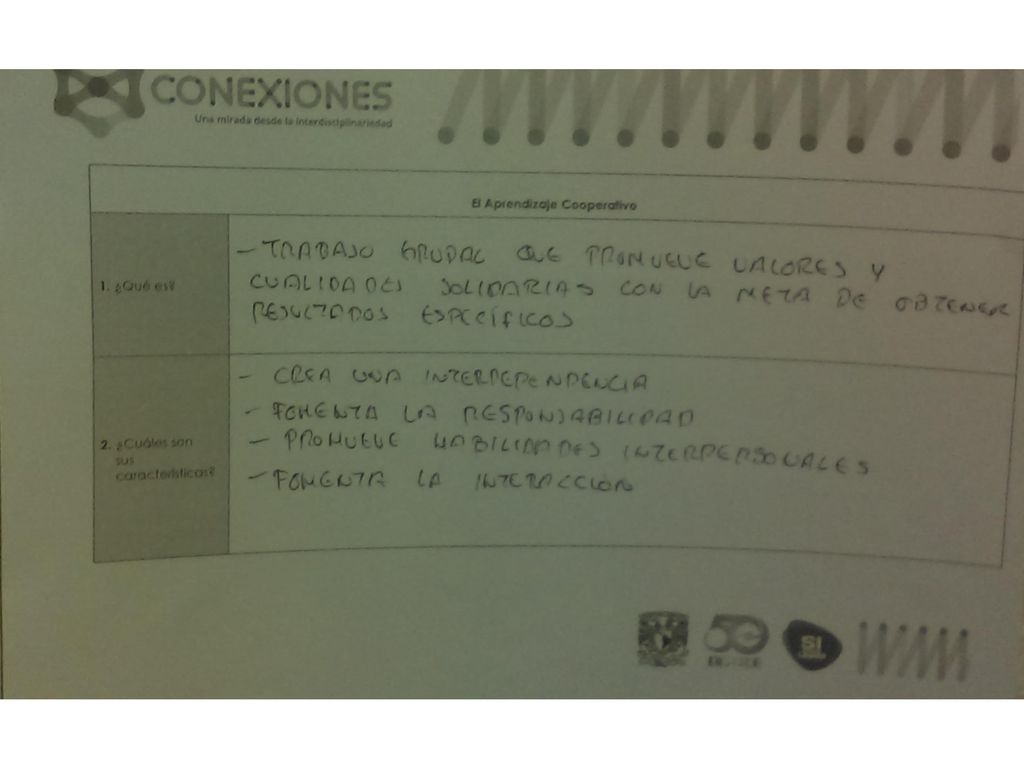 CONEXIONES
Una mirada desde la interdisciplinariedad
El Aprendizaje Cooperativo
1. ¿Qué es?
- TRABAJO GRUPAL QUE PROMUEVE VALORES Y
CUALIDADES SOLIDARIAS CON LA META DE OBTENER
RESULTADOS ESPECÍFICOS
2. ¿Cuáles son
sus
características?
- CREA UNA INTERDEPENDENCIA
- FOMENTA LA RESPONSABILIDAD
- PROMUEVE HABILIDADES INTERPERSONALES
- FOMENTA LA INTERACCIÓN
50
SI